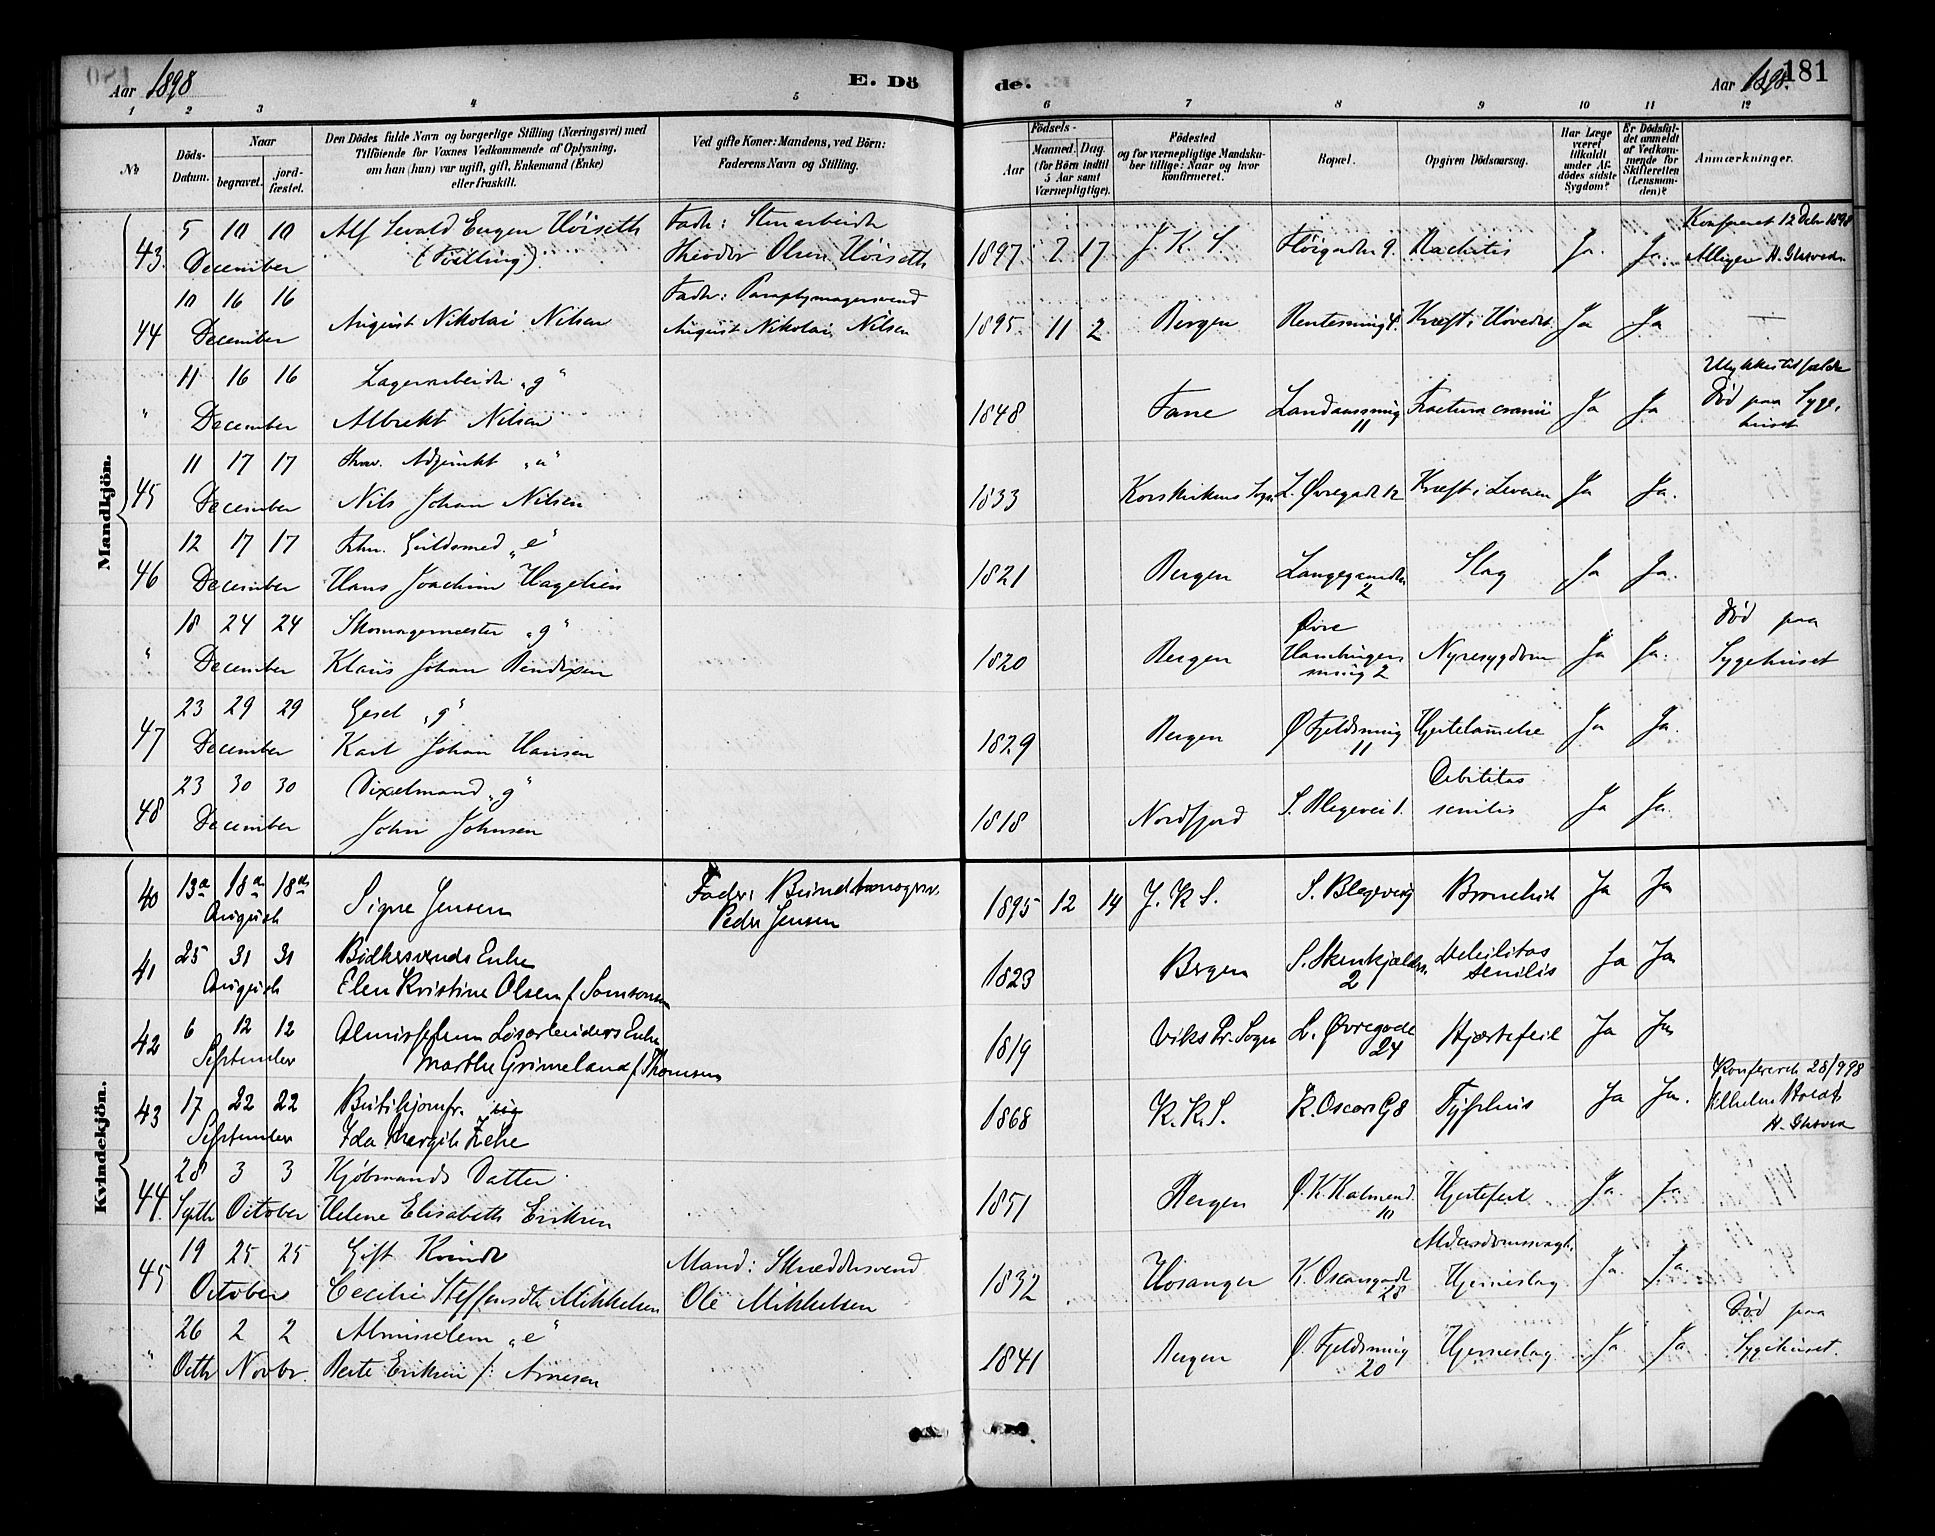 Aar 1898
E. Dö
de.
Aar 1898.
181
1 2 3 4 5 6 7 8 9 10 11 12
No
Döds-Datum.
Naar
begravet.
jord-fæstet.
Den Dödes fulde Navn og borgerlige Stilling (Næringsvei) med
Tilföiende for Voxnes Vedkommende af Oplysning,
om han (hun) var ugift, gift, Enkemand (Enke)
eller fraskilt.
Ved gifte Koner: Mandens, ved Börn:
Faderens Navn og Stilling.
Födsels-
Aar
Maaned. Dag.
(for Börn indtil
5 Aar samt
Værnepligtige).
Födested
og for værnepligtige Mandska-
ber tillige: Naar og hvor
konfirmeret.
Bopæl.
Opgiven Dödsaarsag.
Har Læge
været
tilkaldt
under Af-
dödes sidste
Sygdom?
Er Dödsfal-
det anmeldt
af Vedkom-
mende for
Skifteretten
(Lensman-
den)?
Anmærkninger.
Mandkjön.
43 5 December 10 10 Alf Sevald Eugen Höiseth (Tvilling). Fadr: Stenarbeidr Theodor Olsen Höiseth 1897 7 17 J. K. S Fløigaden 9. Rachitis Ja. Ja. Konfereret 12 Debr 1898
44 10 December 16 16 August Nikolai Nilsen Fadr: Paraplymagersvend August Nikolai Nilsen 1895. 11 2 Bergen Kræft i Hovedet Ja Ja —
" 11 December 16 16 Lagerarbeidr "g" Albrekt Nilsen 1848 Fane Landaassmug 11 Fractura cranii Ja Ja Ulykkestilfælde Død paa Sygehuset
45 11 December 17 17 Adjunkt "u" Nils Johan Nilsen 1833 Korskirkens Sogn L. Øvregade 12 Kræft i Leveren Ja Ja.
46 12 December 17 17 Fhv. Guldsmed "e" Hans Joachim Hagelien 1821 Bergen Langegaarden 2 Slag Ja Ja.
" 18 December 24 24 Skomagermester "g" Klaus Johan Bendixen 1820 Bergen Øvre Hamburgersmug 2 Nyresygdom Ja Ja. Død paa Sygehuset
47 23 December 29 29 "g" Karl Johan Hansen 1829 Bergen Ø Fjeldsmug 11 Hjertelammelse Ja Ja.
48 23 December 30 30 Vixelmand "g" John Johnsen 1818 Nordfjord S. Blegevei 1. Debilitas senilis Ja Ja.
Kvindekjön.
40 13de August 18de 18de Signe Jensen Fader: Buntmager. Peder Jensen 1895 12 14 J. K S. S. Blegevei Bronchit Ja Ja
41 25 August 31 31 Bødkersvends Enke Elen Kristine Olsen f. Samsonsen 1823 Bergen 2 Debilitas senilis Ja Ja
42 6 September 12 12 Almisselem Løsarbeiders Enke Marthe Grimeland f. Thomsen 1819 Viks Pr. Sogn L. Øvregade 24 Hjærtefeil Ja Ja
43 17 September 22 22 Butikjomfr. ug Ida Margit Zehe 1868 K. K. S. K. Oscars G 8 Tyfhus Ja Ja. Konfereret 28/9 98
44. 28 Septbr 3 3 October Kjøbmands Datter Helene Elisabeth Eriksen 1851 Bergen Ø. K. Kalmend. 10 Hjertefeil Ja. Ja.
45 19 October 25 25 Gift Kvinde Cecilie Steffensdtr Mikkelsen Mand: Skræddersvend Ole Mikkelsen 1832 Hosanger K. Oscarsgade 28 Alderdomssvagh. Hjerneslag Ja. Ja.
" 26 Octbr 2 2 Novbr. Almisselem "e" Berte Eriksen f: Arnesen 1841 Bergen Ø. Fjeldsmug 20 Hjerneslag Ja. Ja Død paa Sygehuset.